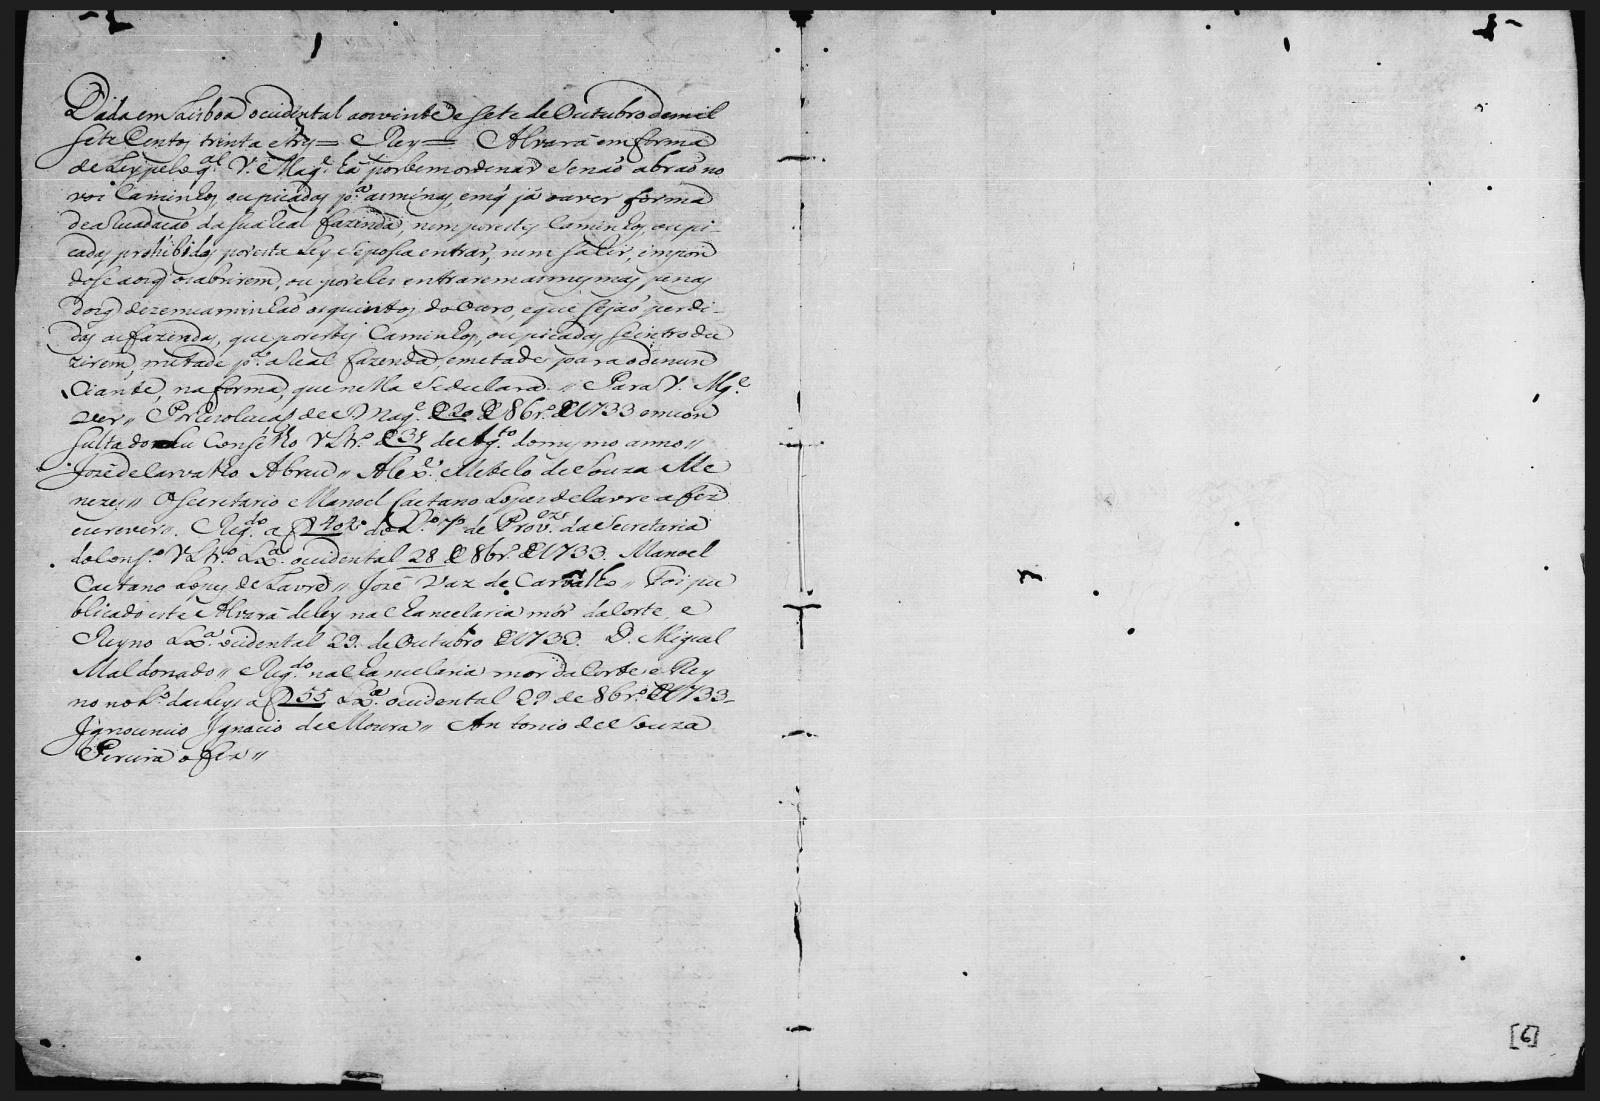 Dada em Lisboa occidental aos vinte e sete de Outubro de mil
sete Centos trinta e tres = Rey = Alvará em forma
de Ley pelo q.al V. Mag.e ha por bem ordenar se naõ abraõ no
vos Caminhos, ou picadas p.a as minas, em q̃ já ouver forma
de arecadacaõ da sua Real fazenda, nem por estes Caminhos, ou pi-
cadas prohibidas por esta Ley se possa entrar, nem sahir, impon
dose aos q̃ os abrirem, ou por eles entrarem as mesmas penas
dos q̃ dezemcaminhaõ os quintos do Ouro, e que sejaõ perdi-
das as fazendas, que por estes Caminhos, ou picadas se introdu
zirem, metade p.a a Real fazenda, e metade para o denun
Ciante, na forma, que nella se declara. // Para V. Mg.e
ver // Por rezolucaõ de S. Mag.e de 20 de 8br.o de 1733 em con
sulta do seu Conselho Vltr.o de 31 de Ag.to do mesmo anno //
Jozé de Carvalho Abreu // Alex.e Metelo de Souza Me
nezes // O Secretario Manoel Caetano Lopes de Lavre a fez
escrever // Reg.do a f 202 do L.o 7.o de Prov.oẽs da Secretaria
do Cons.o Vltr.o Lx.a occidental 28 de 8br.o de 1733. Manoel
Caetano Lopes de Lavre // José Vaz de Carvalho // Foi pu
blicado este Alvará de ley na Chancelaria mór da Corte, e
Reyno Lx.a occidental 29. de Outubro de 1733. D. Miguel
Maldonado // Reg.do na Chancelaria mór da Corte e Rey
no no L.o das Leys a f 55 Lx.a occidental 29 de 8br.o de 1733-
Ignocencio Ignacio de Moura // Antonio de Souza
Pereira o fez //
[6]